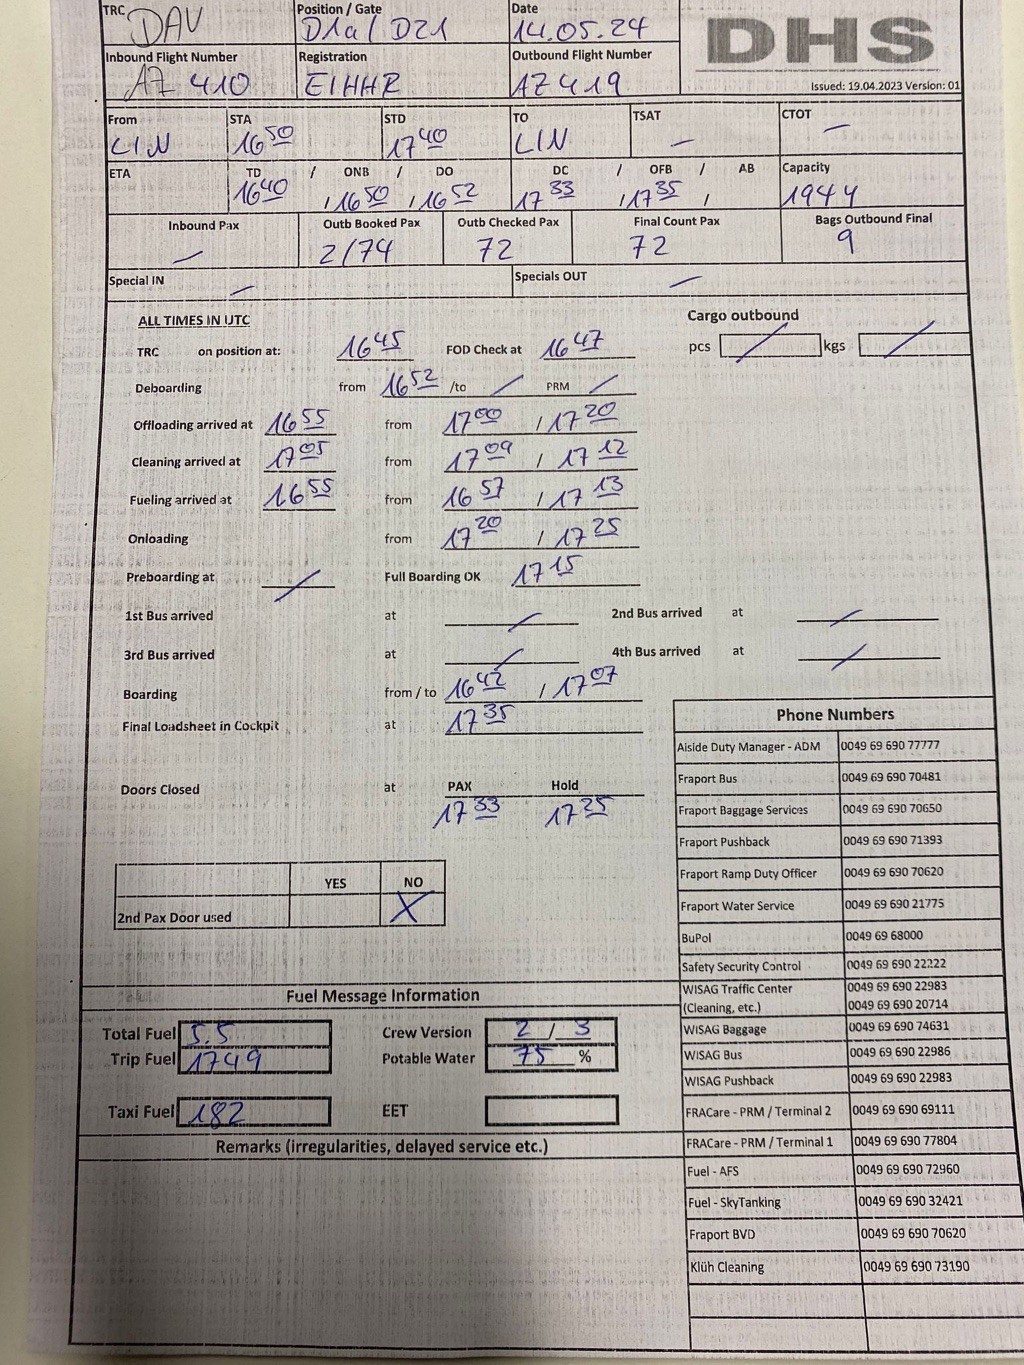 TRC DAV Position / Gate D1a / D21 Date 14.05.24 DHS
Inbound Flight Number AZ 410 Registration EIHHR Outbound Flight Number AZ419 Issued: 19.04.2023 Version: 01
From LIN STA 16 50 STD 17 40 TO LIN TSAT – CTOT –
ETA TD / ONB / DO DC / OFB / AB Capacity
16 40 / 16 50 / 16 52 17 33 / 17 35 / 1944
Inbound Pax – Outb Booked Pax 2/74 Outb Checked Pax 72 Final Count Pax 72 Bags Outbound Final 9
Special IN – Specials OUT –
ALL TIMES IN UTC Cargo outbound
TRC on position at: 16 45 FOD Check at 16 47 pcs / kgs /
Deboarding from 16 52 /to / PRM /
Offloading arrived at 16 55 from 17 00 / 17 20
Cleaning arrived at 17 05 from 17 09 / 17 12
Fueling arrived at 16 55 from 16 57 / 17 13
Onloading from 17 20 / 17 25
Preboarding at / Full Boarding OK 17 15
1st Bus arrived at / 2nd Bus arrived at /
3rd Bus arrived at / 4th Bus arrived at /
Boarding from / to 16 42 / 17 07
Final Loadsheet in Cockpit at 17 35
Doors Closed at PAX Hold
17 33 17 25
YES NO
2nd Pax Door used X
Phone Numbers
Aiside Duty Manager - ADM 0049 69 690 77777
Fraport Bus 0049 69 690 70481
Fraport Baggage Services 0049 69 690 70650
Fraport Pushback 0049 69 690 71393
Fraport Ramp Duty Officer 0049 69 690 70620
Fraport Water Service 0049 69 690 21775
BuPol 0049 69 68000
Safety Security Control 0049 69 690 22222
WISAG Traffic Center 0049 69 690 22983
(Cleaning, etc.) 0049 69 690 20714
WISAG Baggage 0049 69 690 74631
WISAG Bus 0049 69 690 22986
WISAG Pushback 0049 69 690 22983
FRACare - PRM / Terminal 2 0049 69 690 69111
FRACare - PRM / Terminal 1 0049 69 690 77804
Fuel - AFS 0049 69 690 72960
Fuel - SkyTanking 0049 69 690 32421
Fraport BVD 0049 69 690 70620
Klüh Cleaning 0049 69 690 73190
Fuel Message Information
Total Fuel 5.5 Crew Version 2 / 3
Trip Fuel 1749 Potable Water 75 %
Taxi Fuel 182 EET
Remarks (irregularities, delayed service etc.)